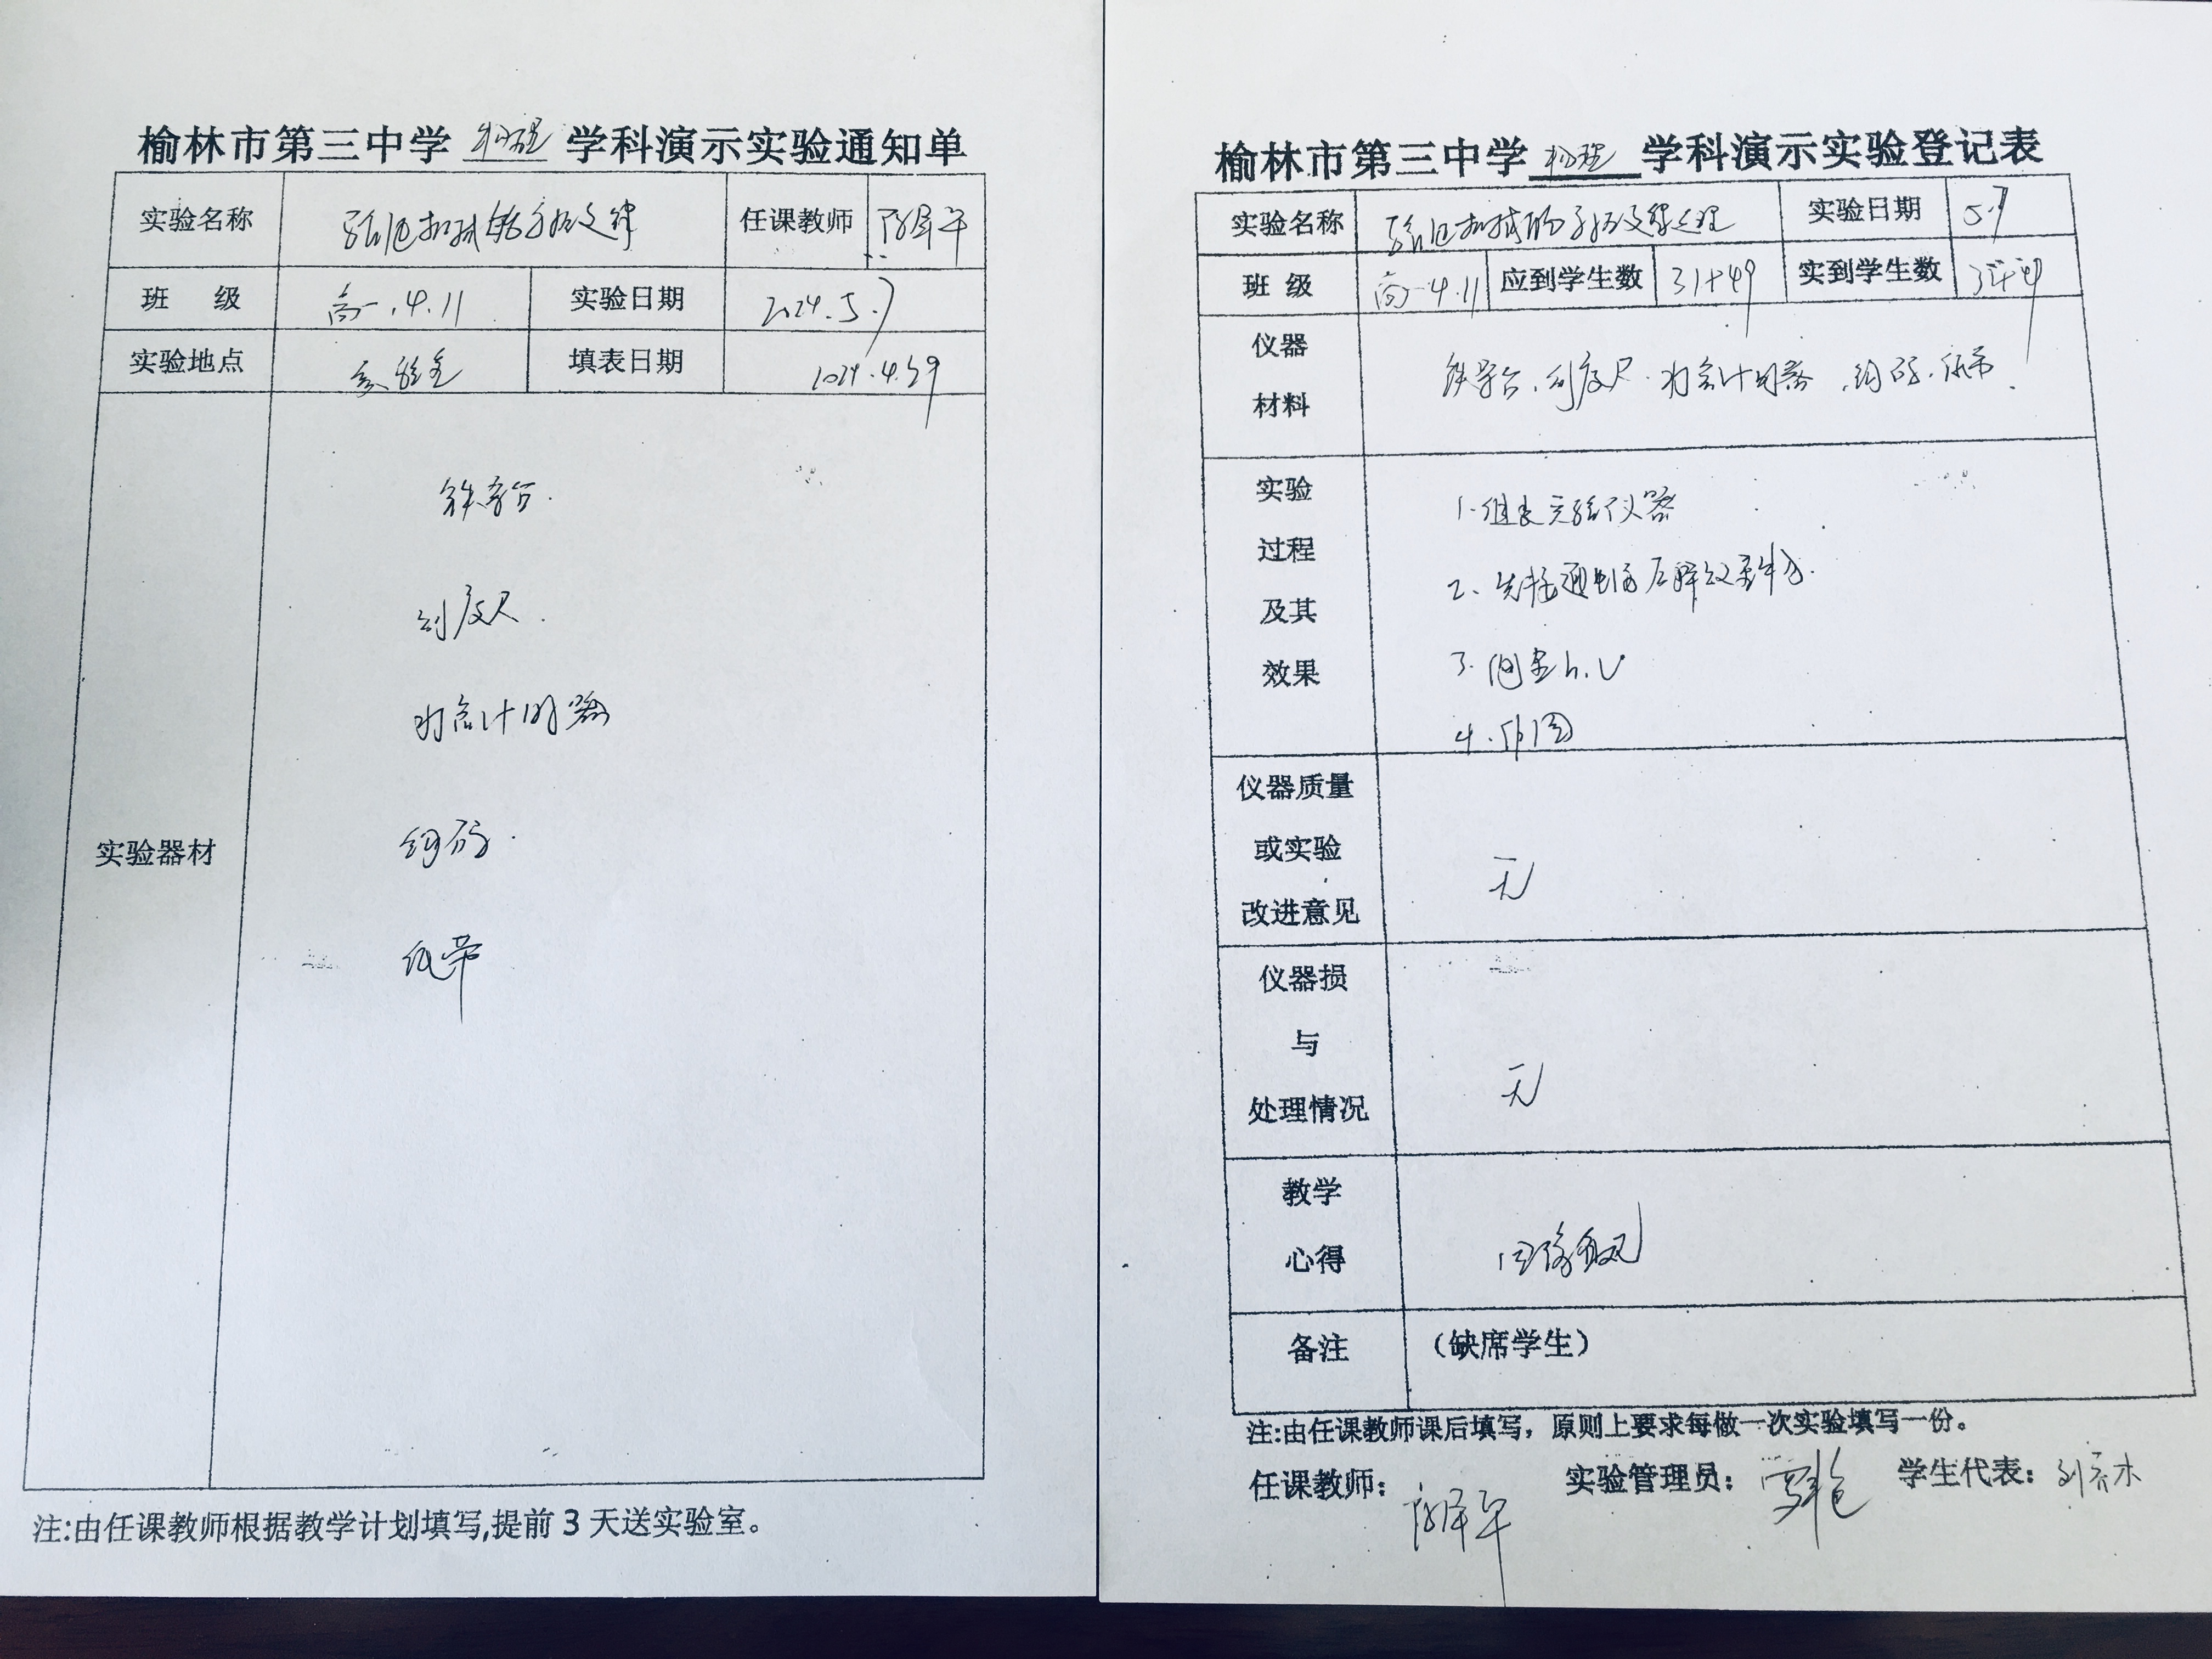 榆林市第三中学 物理 学科演示实验通知单
实验名称 验证机械能守恒定律 任课教师
班 级 高一.4.11 实验日期 2024.5.7
实验地点 实验室 填表日期 2024.4.29
实验器材
铁架台.
刻度尺.
打点计时器
钩码.
纸带
注:由任课教师根据教学计划填写,提前3天送实验室。
榆林市第三中学 物理 学科演示实验登记表
实验名称 验证机械能守恒定律 实验日期 5.7
班 级 高一.4.11 应到学生数 31+49 实到学生数
仪器
材料
铁架台.刻度尺.打点计时器.钩码.纸带.
实验
过程
及其
效果
1.组装实验仪器
2、先接通电源后释放
3.测量h.v
4.作图
仪器质量
或实验
改进意见
无
仪器损
与
处理情况
无
教学
心得
备注 （缺席学生）
注:由任课教师课后填写，原则上要求每做一次实验填写一份。
任课教师： 实验管理员： 学生代表：